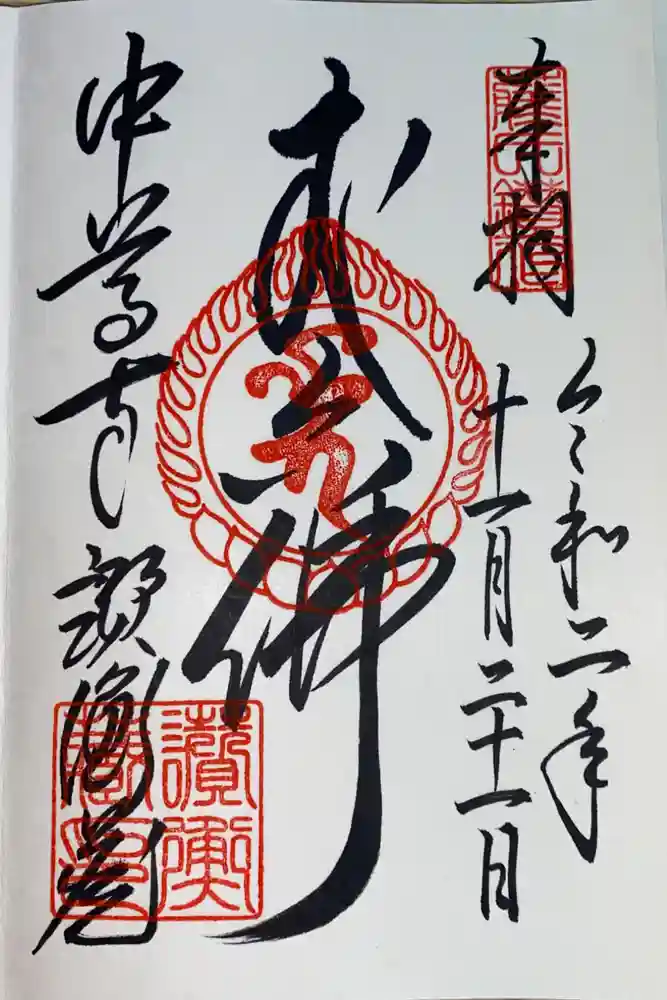 奉拝
令和二年
十一月二十一日
丈六佛
中尊寺 讃衡蔵
讃衡
蔵印